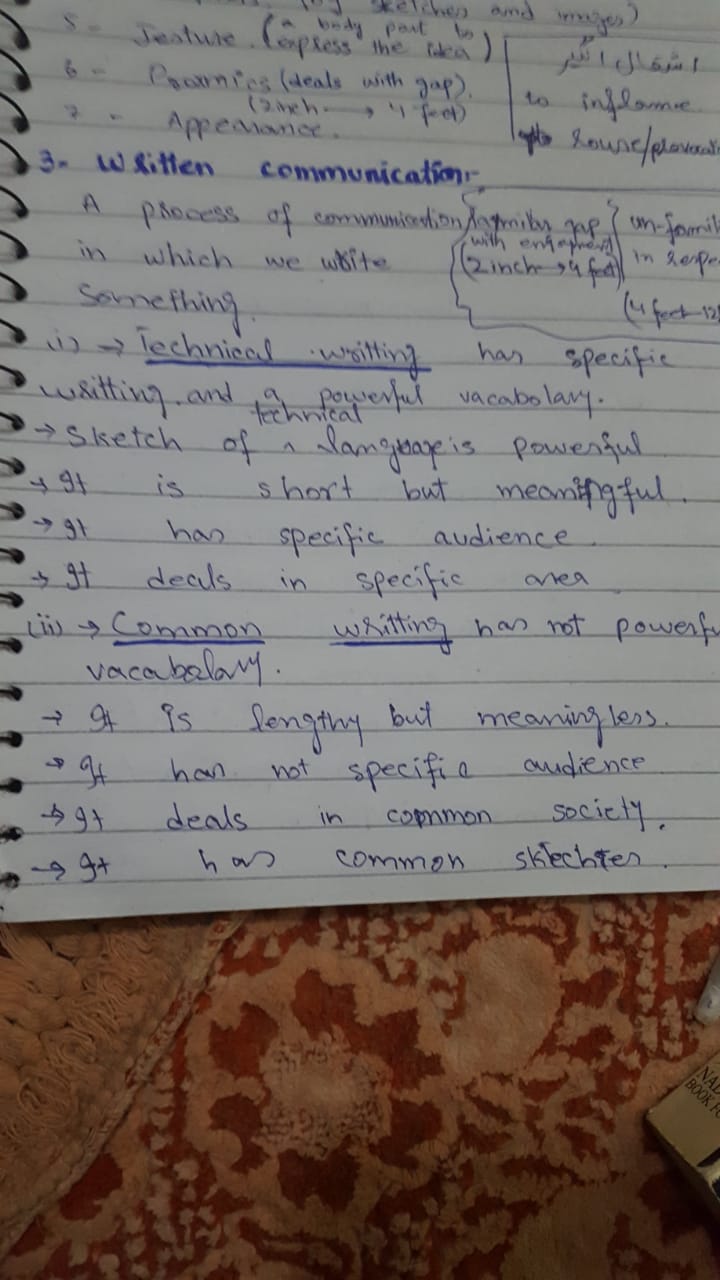 sketches and images)
5- Jesture. (a body part to
express the idea)
اشتعال انگیز
6- Proxmics (deals with gap).
(2inch → 4 feet)
to inflame
7- Appearance.
rouse/
3- Written communication:-
A process of communication
in which we write
something.
gap
with engagment
(2inch → 4 feet)
un-famil
in
(4 feet-12
(i) → Technical writting has specific
writting and a powerful vacabolary.
→ Sketch of a technical language is powerful
→ It is short but meaningful.
→ It has specific audience.
→ It deals in specific area
(ii) → Common writting has not powerfu
vacabalary.
→ It is lengthy but meaningless.
→ It has not specific audience
→ It deals in common society.
→ It has common sktechtes.
NA
BOOK F